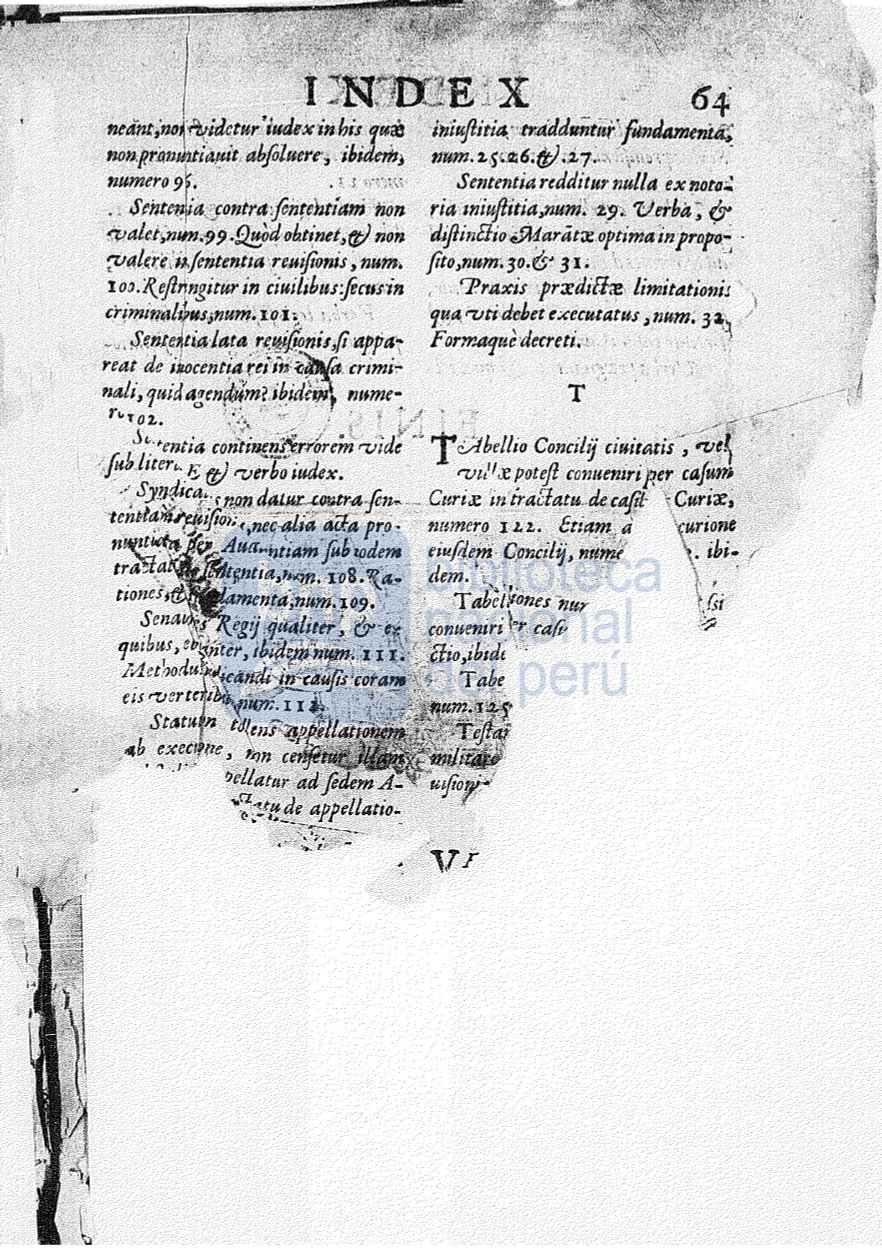 INDEX 64
neant, non videtur iudex in his quæ
non pronuntiauit absoluere, ibidem,
numero 95.
Sentenia contra sententiam non
valet, num. 99. Quod obtinet, & non
valere in sententia reuisionis, num.
100. Restringitur in ciuilibus: secus in
criminalibus, num. 101.
Sententia lata reuisionis, si appa-
reat de inocentia rei in causa crimi-
nali, quid agendum? ibidem, nume-
ro 102.
entia continens errorem vide
sub litera E & verbo iudex.
Syndica non datur contra sen-
tentiam reuision, nec alia acta pro-
nuntiata per Au ntiam sub eodem
tractat sententia, num. 108. Ra-
tiones, & damenta, num. 109.
Senau Regij qualiter, & ex
quibus, inter, ibidem num. 111.
Methodu icandi in causis coram
eis verte num. 112.
Statum tollens appellationem
ab exec ne, non censetur illam
pellatur ad sedem A-
tu de appellatio-
iniustitia tradduntur fundamenta,
num. 25. 26. &. 27.
Sententia redditur nulla ex noto-
ria iniustitia, num. 29. Verba, &
distinctio Marãtæ optima in propo-
sito, num. 30. & 31.
Praxis prædictæ limitationis
qua vti debet executatus, num. 32,
Formaquè decreti.
T
TAbellio Concilij ciuitatis, vel
villæ potest conueniri per casum
Curiæ in tractatu de casib Curiæ,
numero 122. Etiam a curione
eiusdem Concilij, nume . ibi-
dem.
Tabelliones nu
conueniri er cas si
ctio, ibide
Tabe
num. 125
Testa
militare
uision
V
biblioteca
nacional
del perú